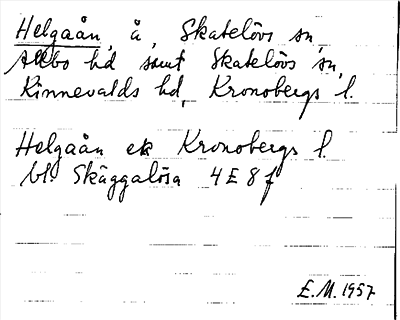 Helgaån, å, Skatelövs sn,
Allbo hd samt Skatelövs sn,
Kinnevalds hd, Kronobergs l.
Helgaån ek Kronobergs l.
bl. Skäggalösa 4E 8f
E.M. 1957